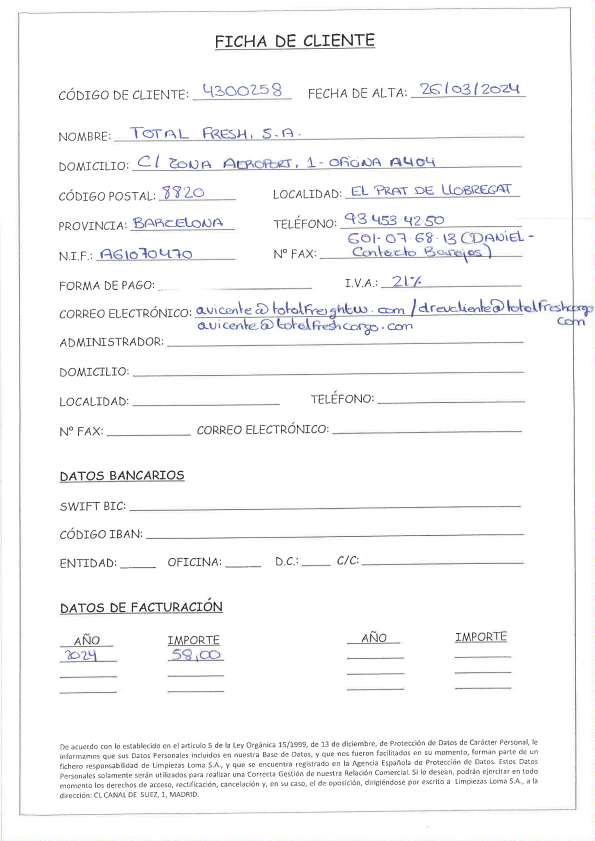 FICHA DE CLIENTE
CÓDIGO DE CLIENTE: 4300258 FECHA DE ALTA: 26/03/2024
NOMBRE: TOTAL FRESH, S.A.
DOMICILIO: C/ ZONA AEROPORT, 1 - OFICINA A404
CÓDIGO POSTAL: 8820 LOCALIDAD: EL PRAT DE LLOBREGAT
PROVINCIA: BARCELONA TELÉFONO: 93 453 42 50
601-07-68-13 (DANIEL -
N.I.F.: A61070470 Nº FAX: Contacto Barajas)
FORMA DE PAGO: I.V.A.: 21%
CORREO ELECTRÓNICO: avicente@totalfreightw.com / drevaliente@totalfreshcargo
avicente@totalfreshcargo.com com
ADMINISTRADOR:
DOMICILIO:
LOCALIDAD: TELÉFONO:
Nº FAX: CORREO ELECTRÓNICO:
DATOS BANCARIOS
SWIFT BIC:
CÓDIGO IBAN:
ENTIDAD: OFICINA: D.C.: C/C:
DATOS DE FACTURACIÓN
AÑO IMPORTE AÑO IMPORTE
2024 58,00
De acuerdo con lo establecido en el artículo 5 de la Ley Orgánica 15/1999, de 13 de diciembre, de Protección de Datos de Carácter Personal, le
informamos que sus Datos Personales incluidos en nuestra Base de Datos, y que nos fueron facilitados en su momento, forman parte de un
fichero responsabilidad de Limpiezas Loma S.A., y que se encuentra registrado en la Agencia Española de Protección de Datos. Estos Datos
Personales solamente serán utilizados para realizar una Correcta Gestión de nuestra Relación Comercial. Si lo desean, podrán ejercitar en todo
momento los derechos de acceso, rectificación, cancelación y, en su caso, el de oposición, dirigiéndose por escrito a Limpiezas Loma S.A., a la
dirección: CL CANAL DE SUEZ, 1, MADRID.